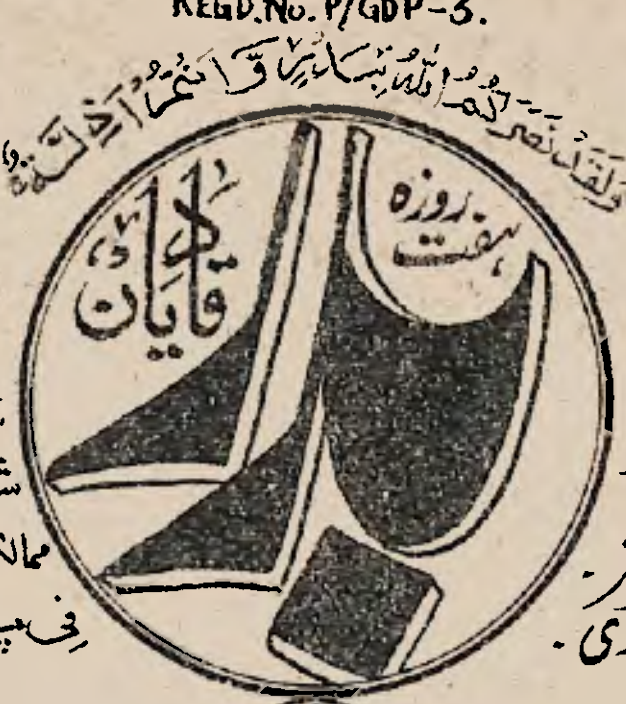 REGD. No. P/GDP-3.
وَلَقَدْ نَصَرَكُمُ اللّٰهُ بِبَدْرٍ وَّاَنْتُمْ اَذِلَّةٌ
ہفت روزہ
بدر
قادیان